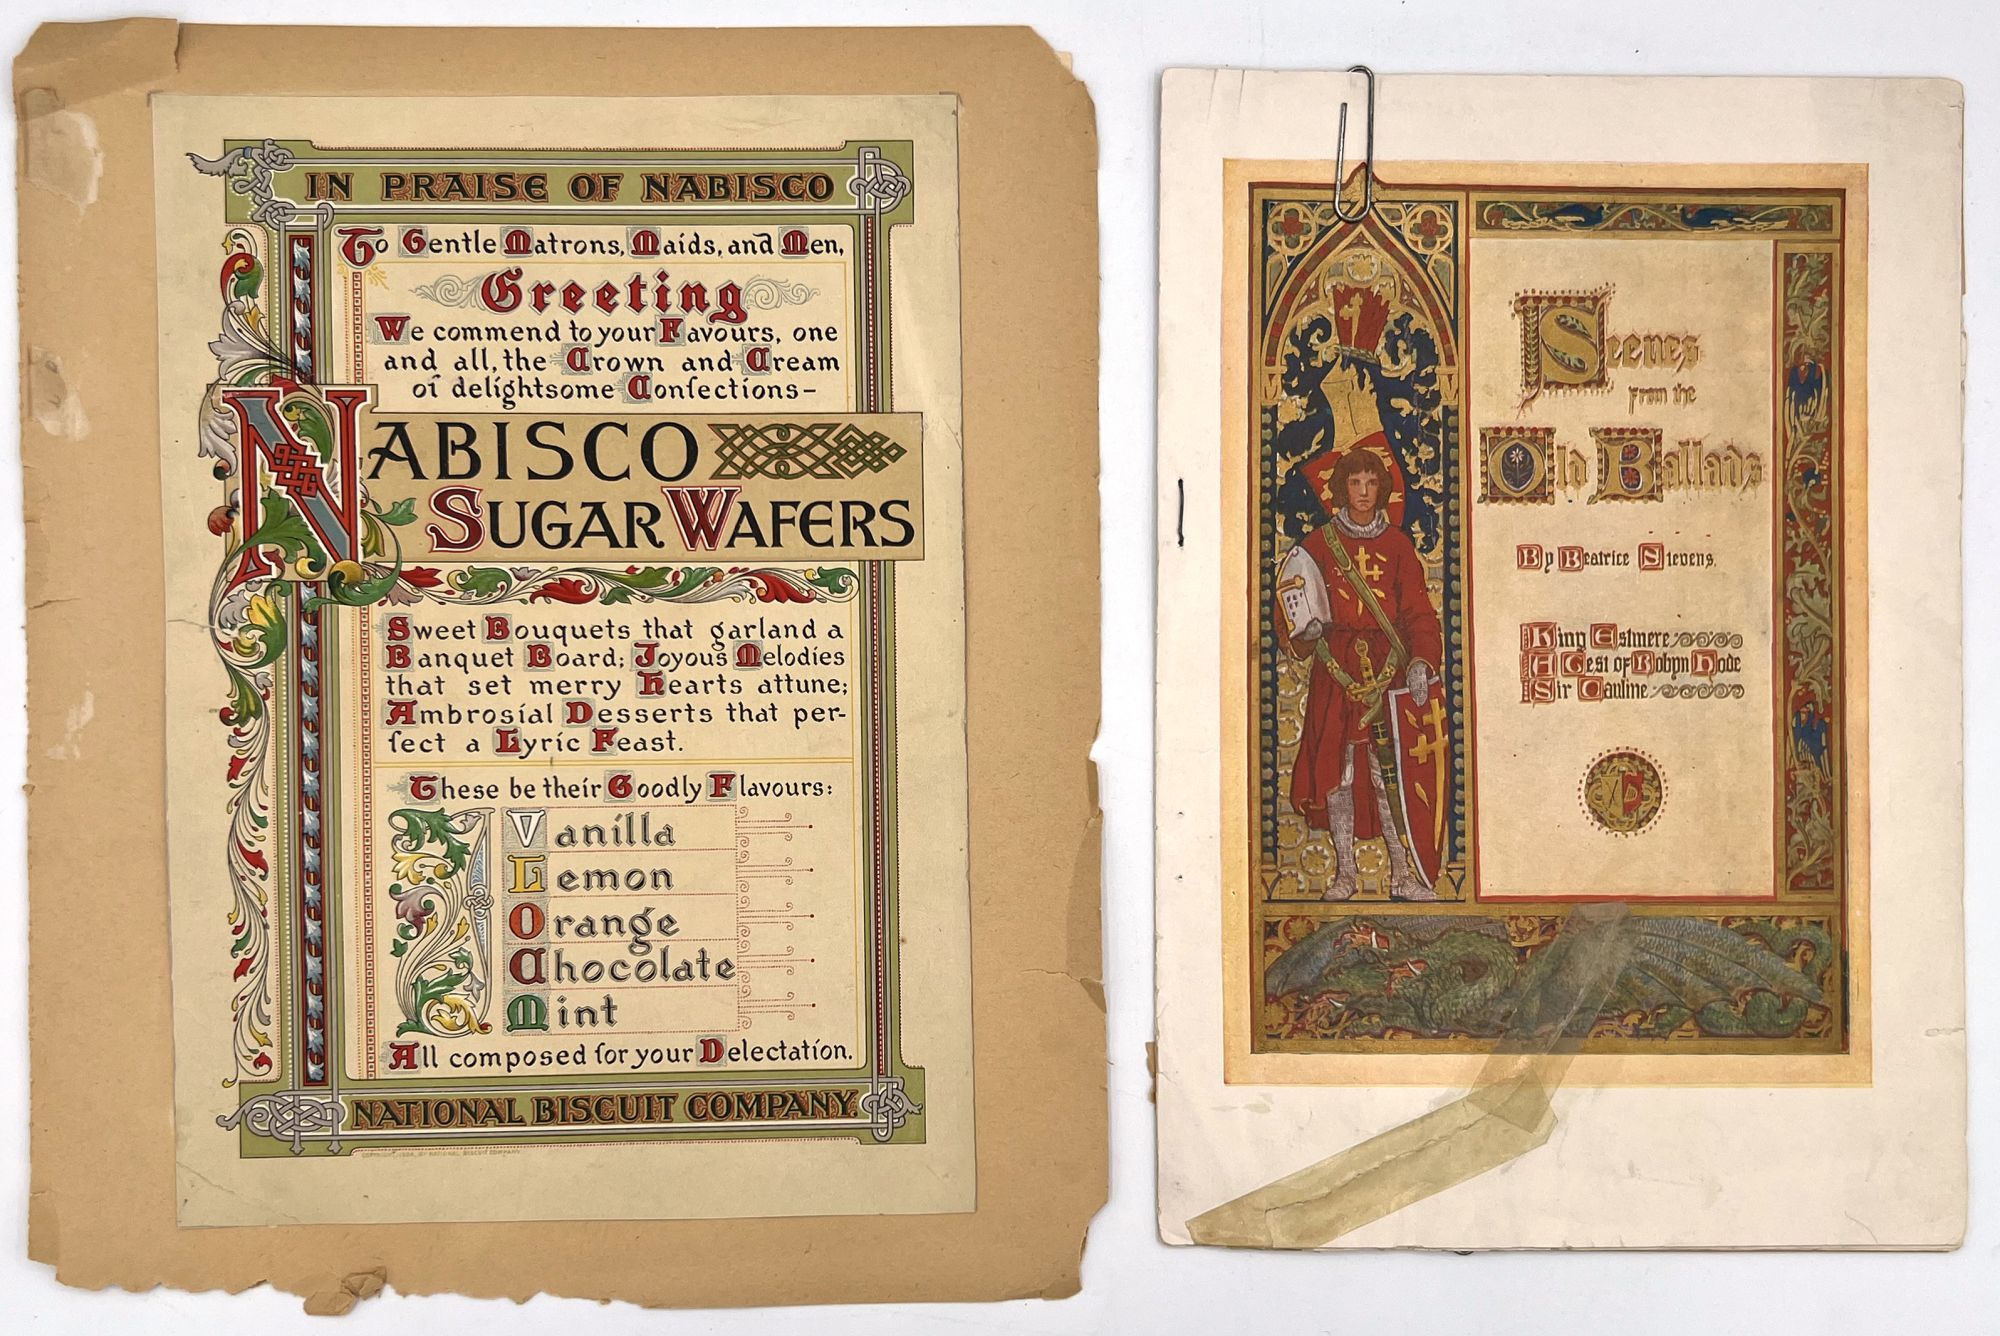 IN PRAISE OF NABISCO
To Gentle Matrons, Maids, and Men,
Greeting
We commend to your Favours, one
and all, the Crown and Cream
of delightsome Confections-
NABISCO
SUGAR WAFERS
Sweet Bouquets that garland a
Banquet Board; Joyous Melodies
that set merry Hearts attune;
Ambrosial Desserts that per-
fect a Lyric Feast.
These be their Goodly Flavours:
Vanilla
Lemon
Orange
Chocolate
Mint
All composed for your Delectation.
NATIONAL BISCUIT COMPANY.
COPYRIGHT, BY NATIONAL BISCUIT COMPANY
Scenes
from the
Old Ballads
By Beatrice Stevens.
King Estmere
A Gest of Robyn Hode
Sir Cauline